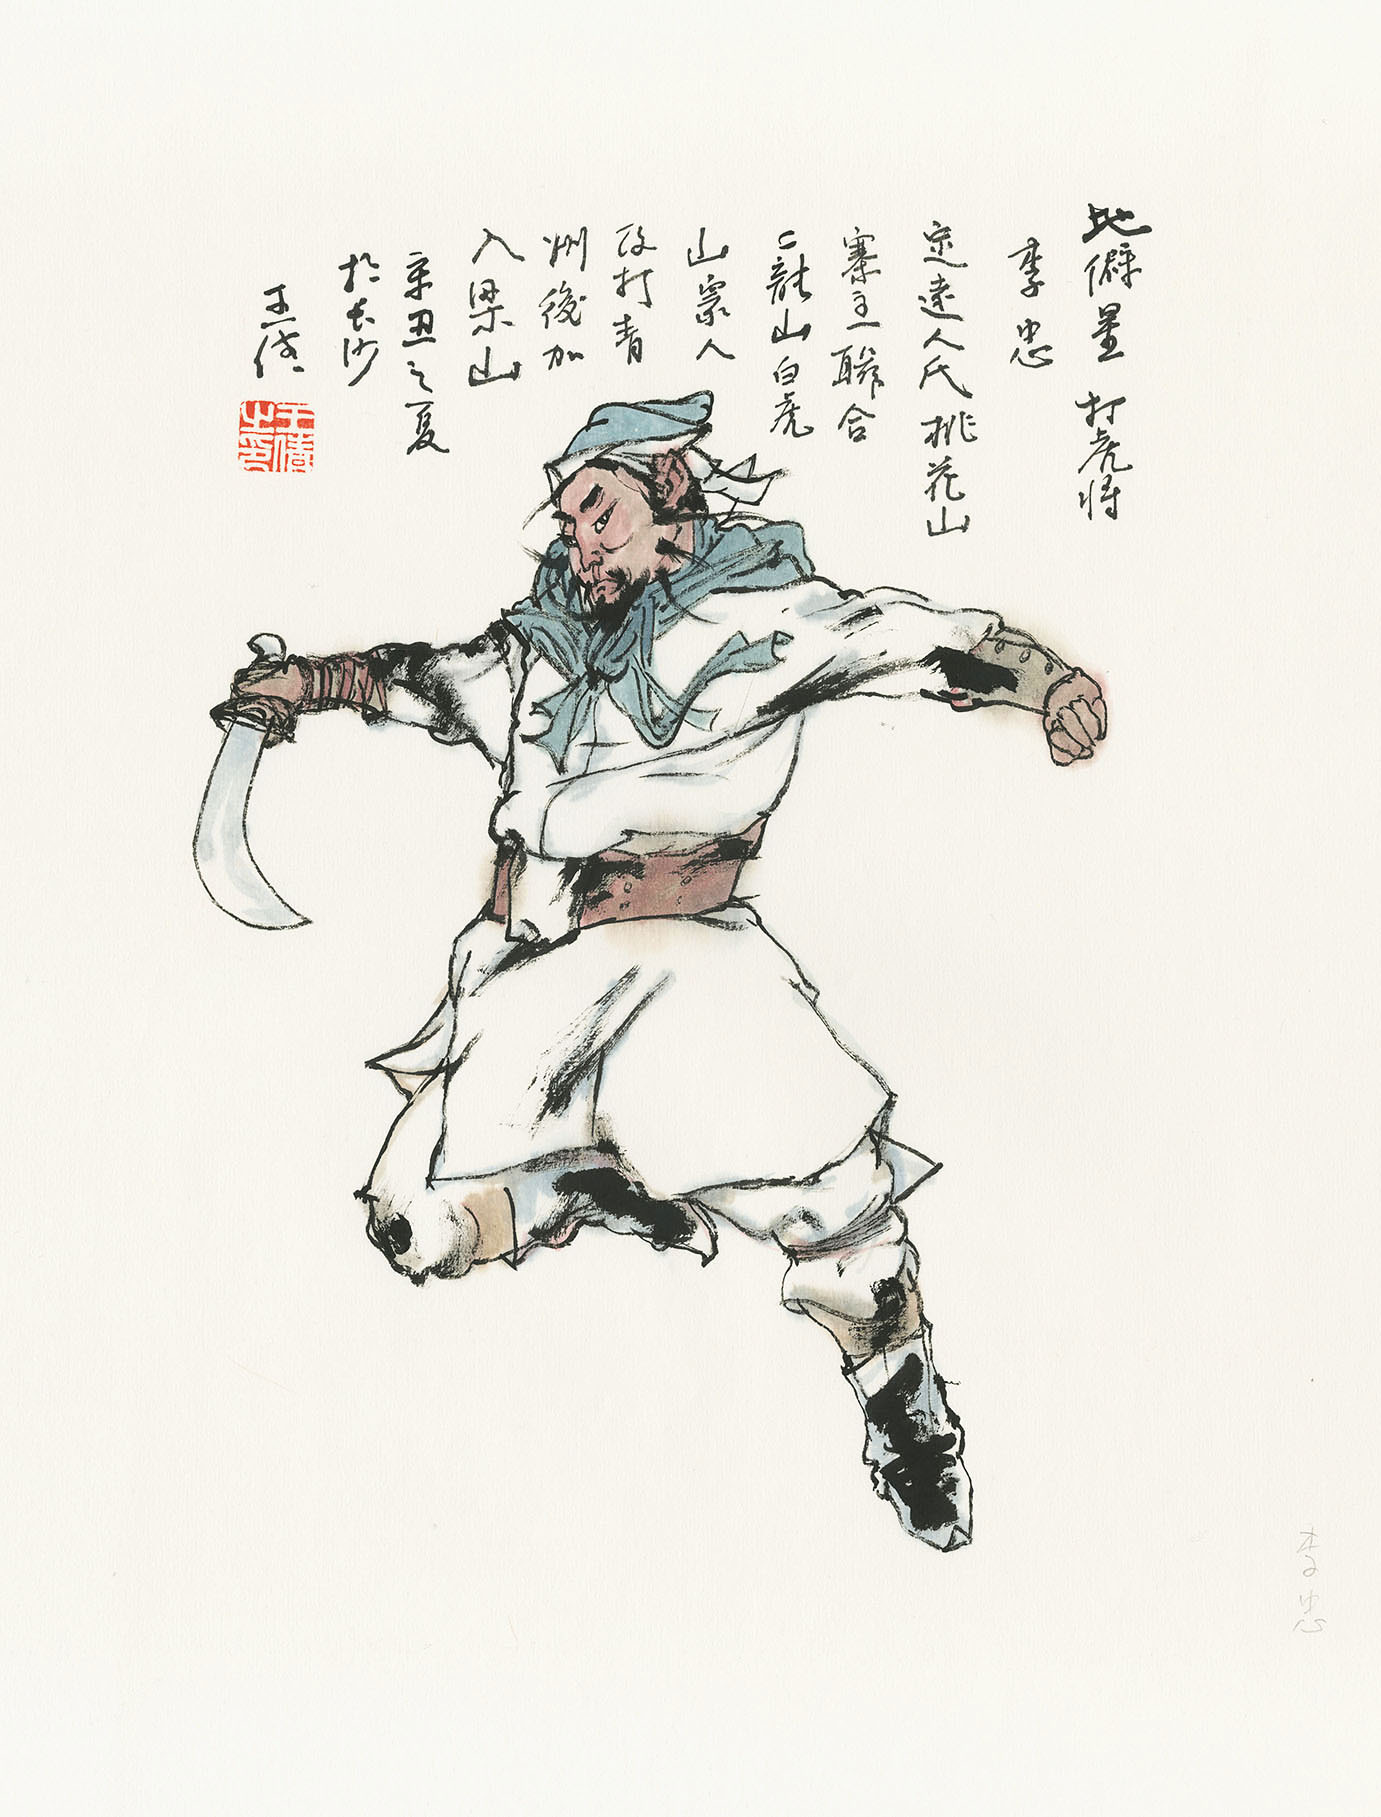 地僻星 打虎将
李忠
定遠人氏桃花山
寨主一聯合
二龍山白虎
山眾人
攻打青
州後加
入梁山
辛丑之夏
於长沙
王
李忠